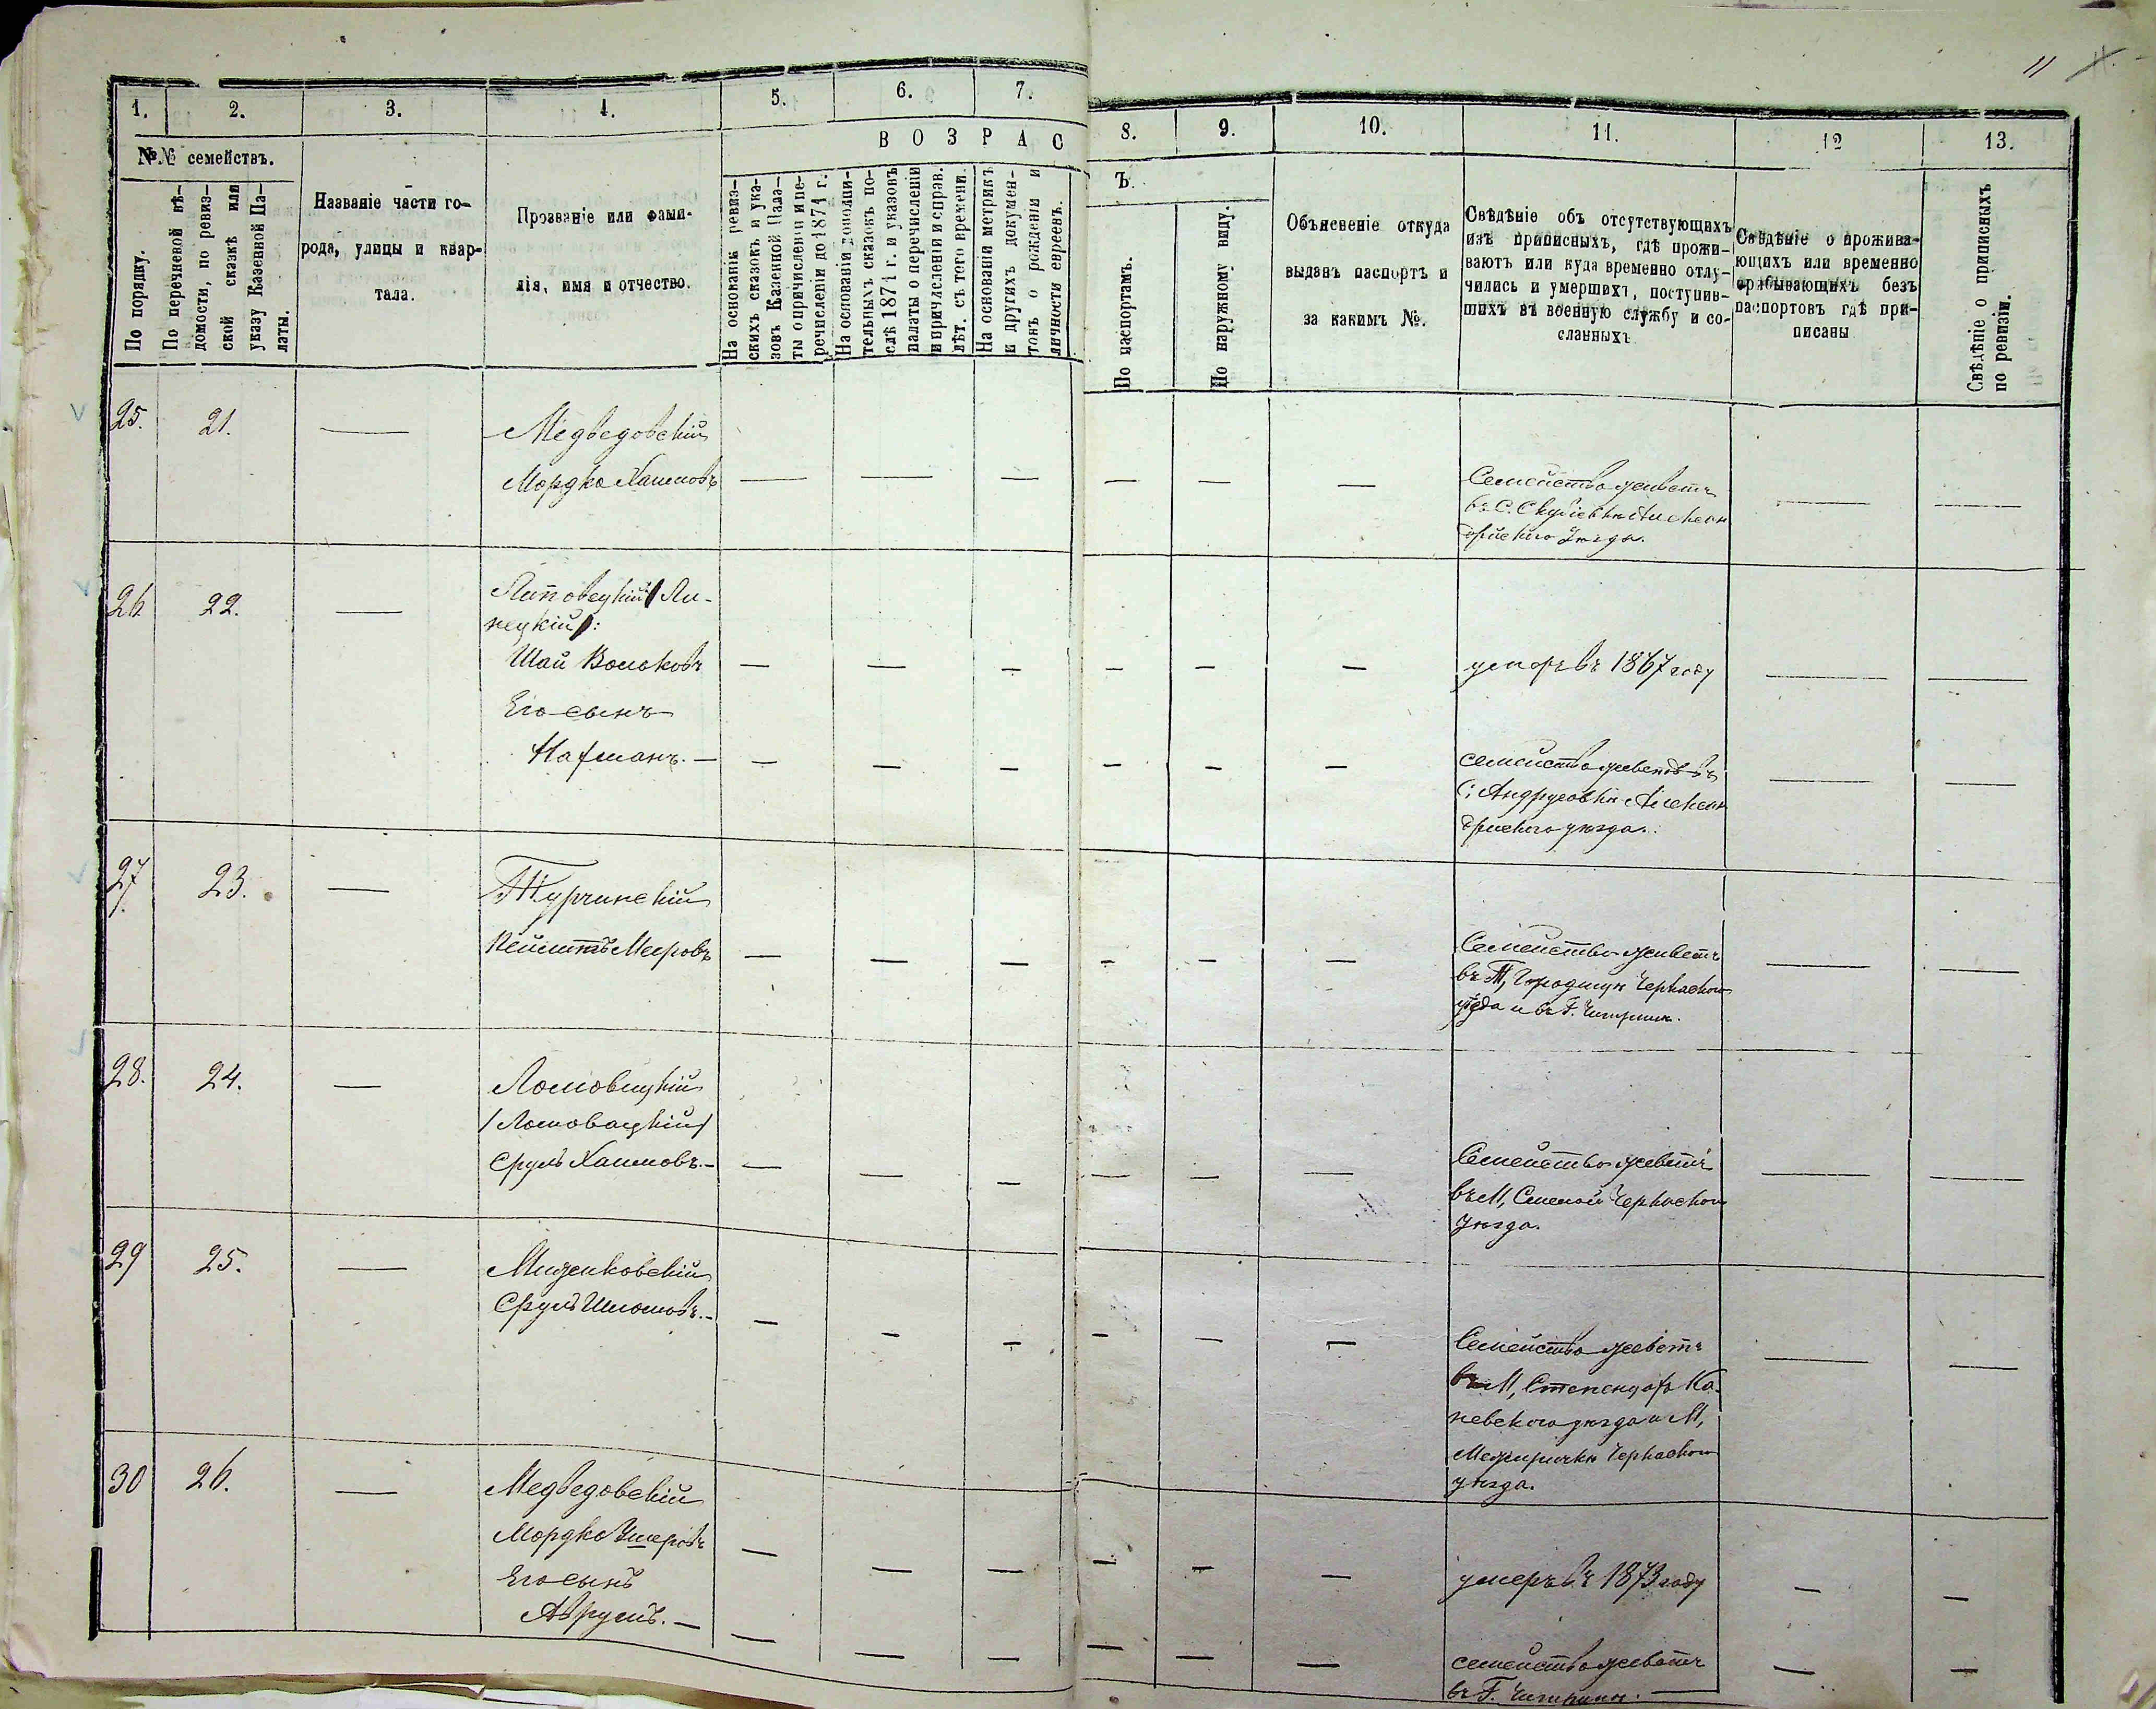 11
1. 2. 3. 4. 5. 6. 7. 8. 9. 10. 11. 12 13.
В О З Р А С Ъ.
№№ семействъ.
По порядку.
По перечневой вѣ-
домости, по ревиз-
ской сказкѣ или
указу Казенной Па-
латы.
Названіе части го-
рода, улицы и квар-
тала.
Прозваніе или фами-
лія, имя и отчество.
На основаніи ревиз-
скихъ сказокъ и ука-
зовъ Казенной Пала-
ты о причисленіи и пе-
речисленіи до 1874 г.
На основаніи дополни-
тельныхъ сказокъ по-
слѣ 1874 г. и указовъ
палаты о перечисленіи
и причисленіи и справ.
лѣт. съ того времени.
На основаніи метрикъ
и другихъ докумен-
товъ о рожденіи и
личности евреевъ.
По паспортамъ.
По наружному виду.
Объясненіе откуда
выданъ паспортъ и
за какимъ №.
Свѣдѣніе объ отсутствующихъ
изъ приписныхъ, гдѣ прожи-
ваютъ или куда временно отлу-
чились и умершихъ, поступив-
шихъ въ военную службу и со-
сланныхъ
Свѣдѣніе о прожива-
ющихъ или временно
прибывающихъ безъ
паспортовъ гдѣ при-
писаны
Свѣдѣніе о приписныхъ
по ревизіи.
25. 21. — Медведовскій
Мордко Хаимовъ — — — — — — Семейство живетъ — —
въ С. Алексан
дрійскаго Уѣзда.
26 22. — Липовецкій (Ли-
нецкій):
Шая Вольковъ — — — — — — умеръ въ 1867 году — —
Его сынъ
Нахманъ. — — — — — — — семейство живетъ въ — —
С: Андрусовкѣ Алексан
дрійскаго уѣзда.
27. 23. — Турчинскій
Меировъ — — — — — — Семейство живетъ — —
въ М, Городищѣ Черкаскаго
уѣзда и въ Г. Чигиринѣ.
28. 24. — Ломовицкій
/Ломовацкій/
Сруль Хаимовъ. — — — — — — — Семейство живетъ — —
въ М, Смелой Черкаскаго
Уѣзда.
29 25. — Миденковскій
Сруль Шломовъ. — — — — — — — Семейство живетъ — —
въ М, Степенцахъ Ка-
невскаго уѣзда и М,
Межиричкѣ Черкаскаго
уѣзда.
30 26. — Медведовскій
Мордко Ушеровъ — — — — — — умеръ въ 1873 году — —
Его сынъ
Аврумъ. — — — — — — — семейство живетъ — —
въ Г. Чигиринѣ. —